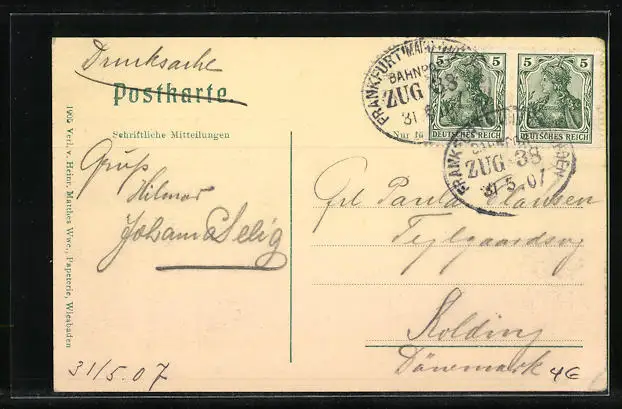 Drucksache
Postkarte.
Schriftliche Mitteilungen
Nur fü
Gruß
Hilmar
Johanna Selig
31/5.07
1905 Verl. v. Heinr. Matthes Wwe., Papeterie, Wiesbaden
FRANKFURT (MAIN)
BAHNPO
ZUG 38
31 5
5 5
DEUTSCHES REICH
5 5
DEUTSCHES REICH
FRANKF
BAHNPOS
ZUG 38
31 5 07
Frl Paula Clausen
Kolding
Dänemark
4€